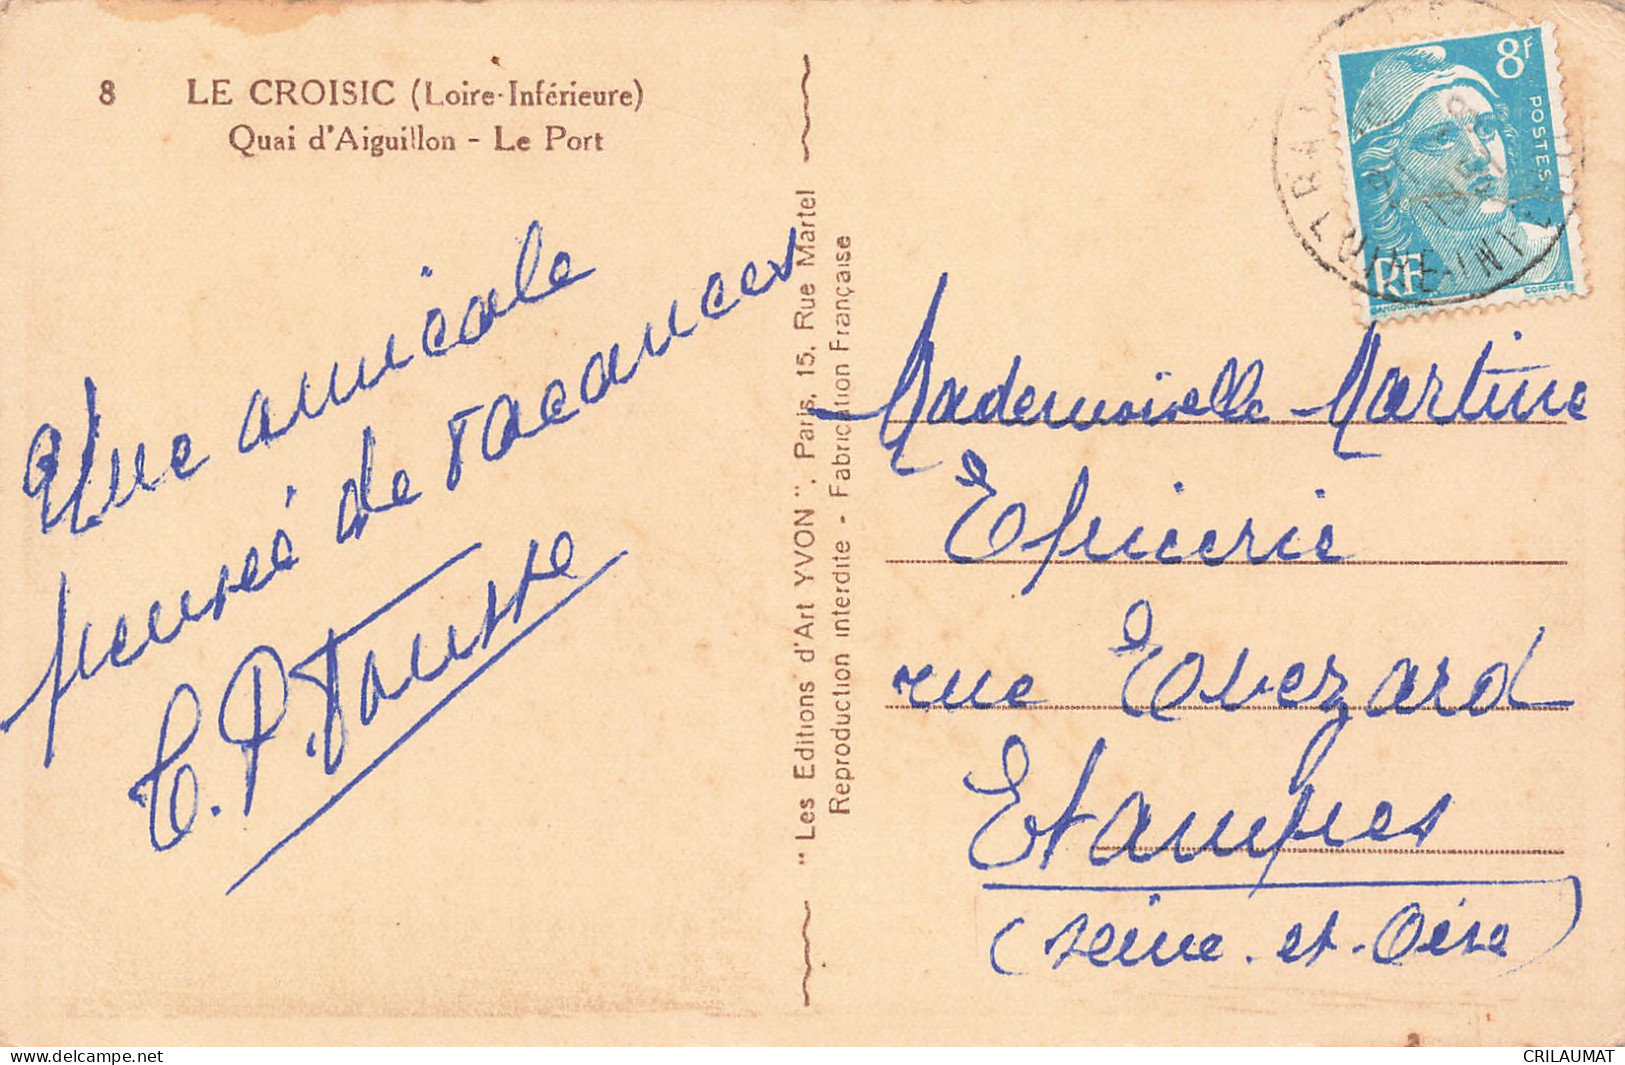 8 LE CROISIC (Loire-Inférieure)
Quai d'Aiguillon - Le Port
Une amicale
pensée de vacances
"Les Editions d'Art YVON", Paris, 15, Rue Martel
Reproduction interdite - Fabrication Française
8F
POSTES
RF
GANDON
CORTOT
LOIRE-INF
Mademoiselle Martine
Epicerie
rue Evezard
Etampes
(Seine-et-Oise)
CRILAUMAT